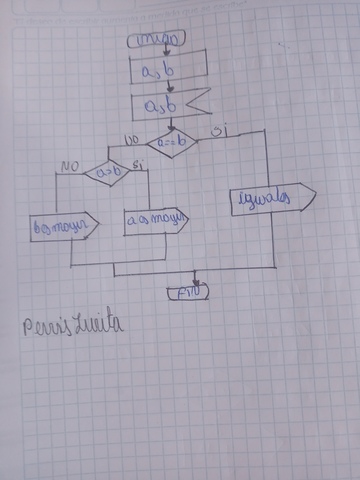 inicio
a, b
a, b
NO a==b Si
NO a>b Si
b es mayor a es mayor iguales
FIN